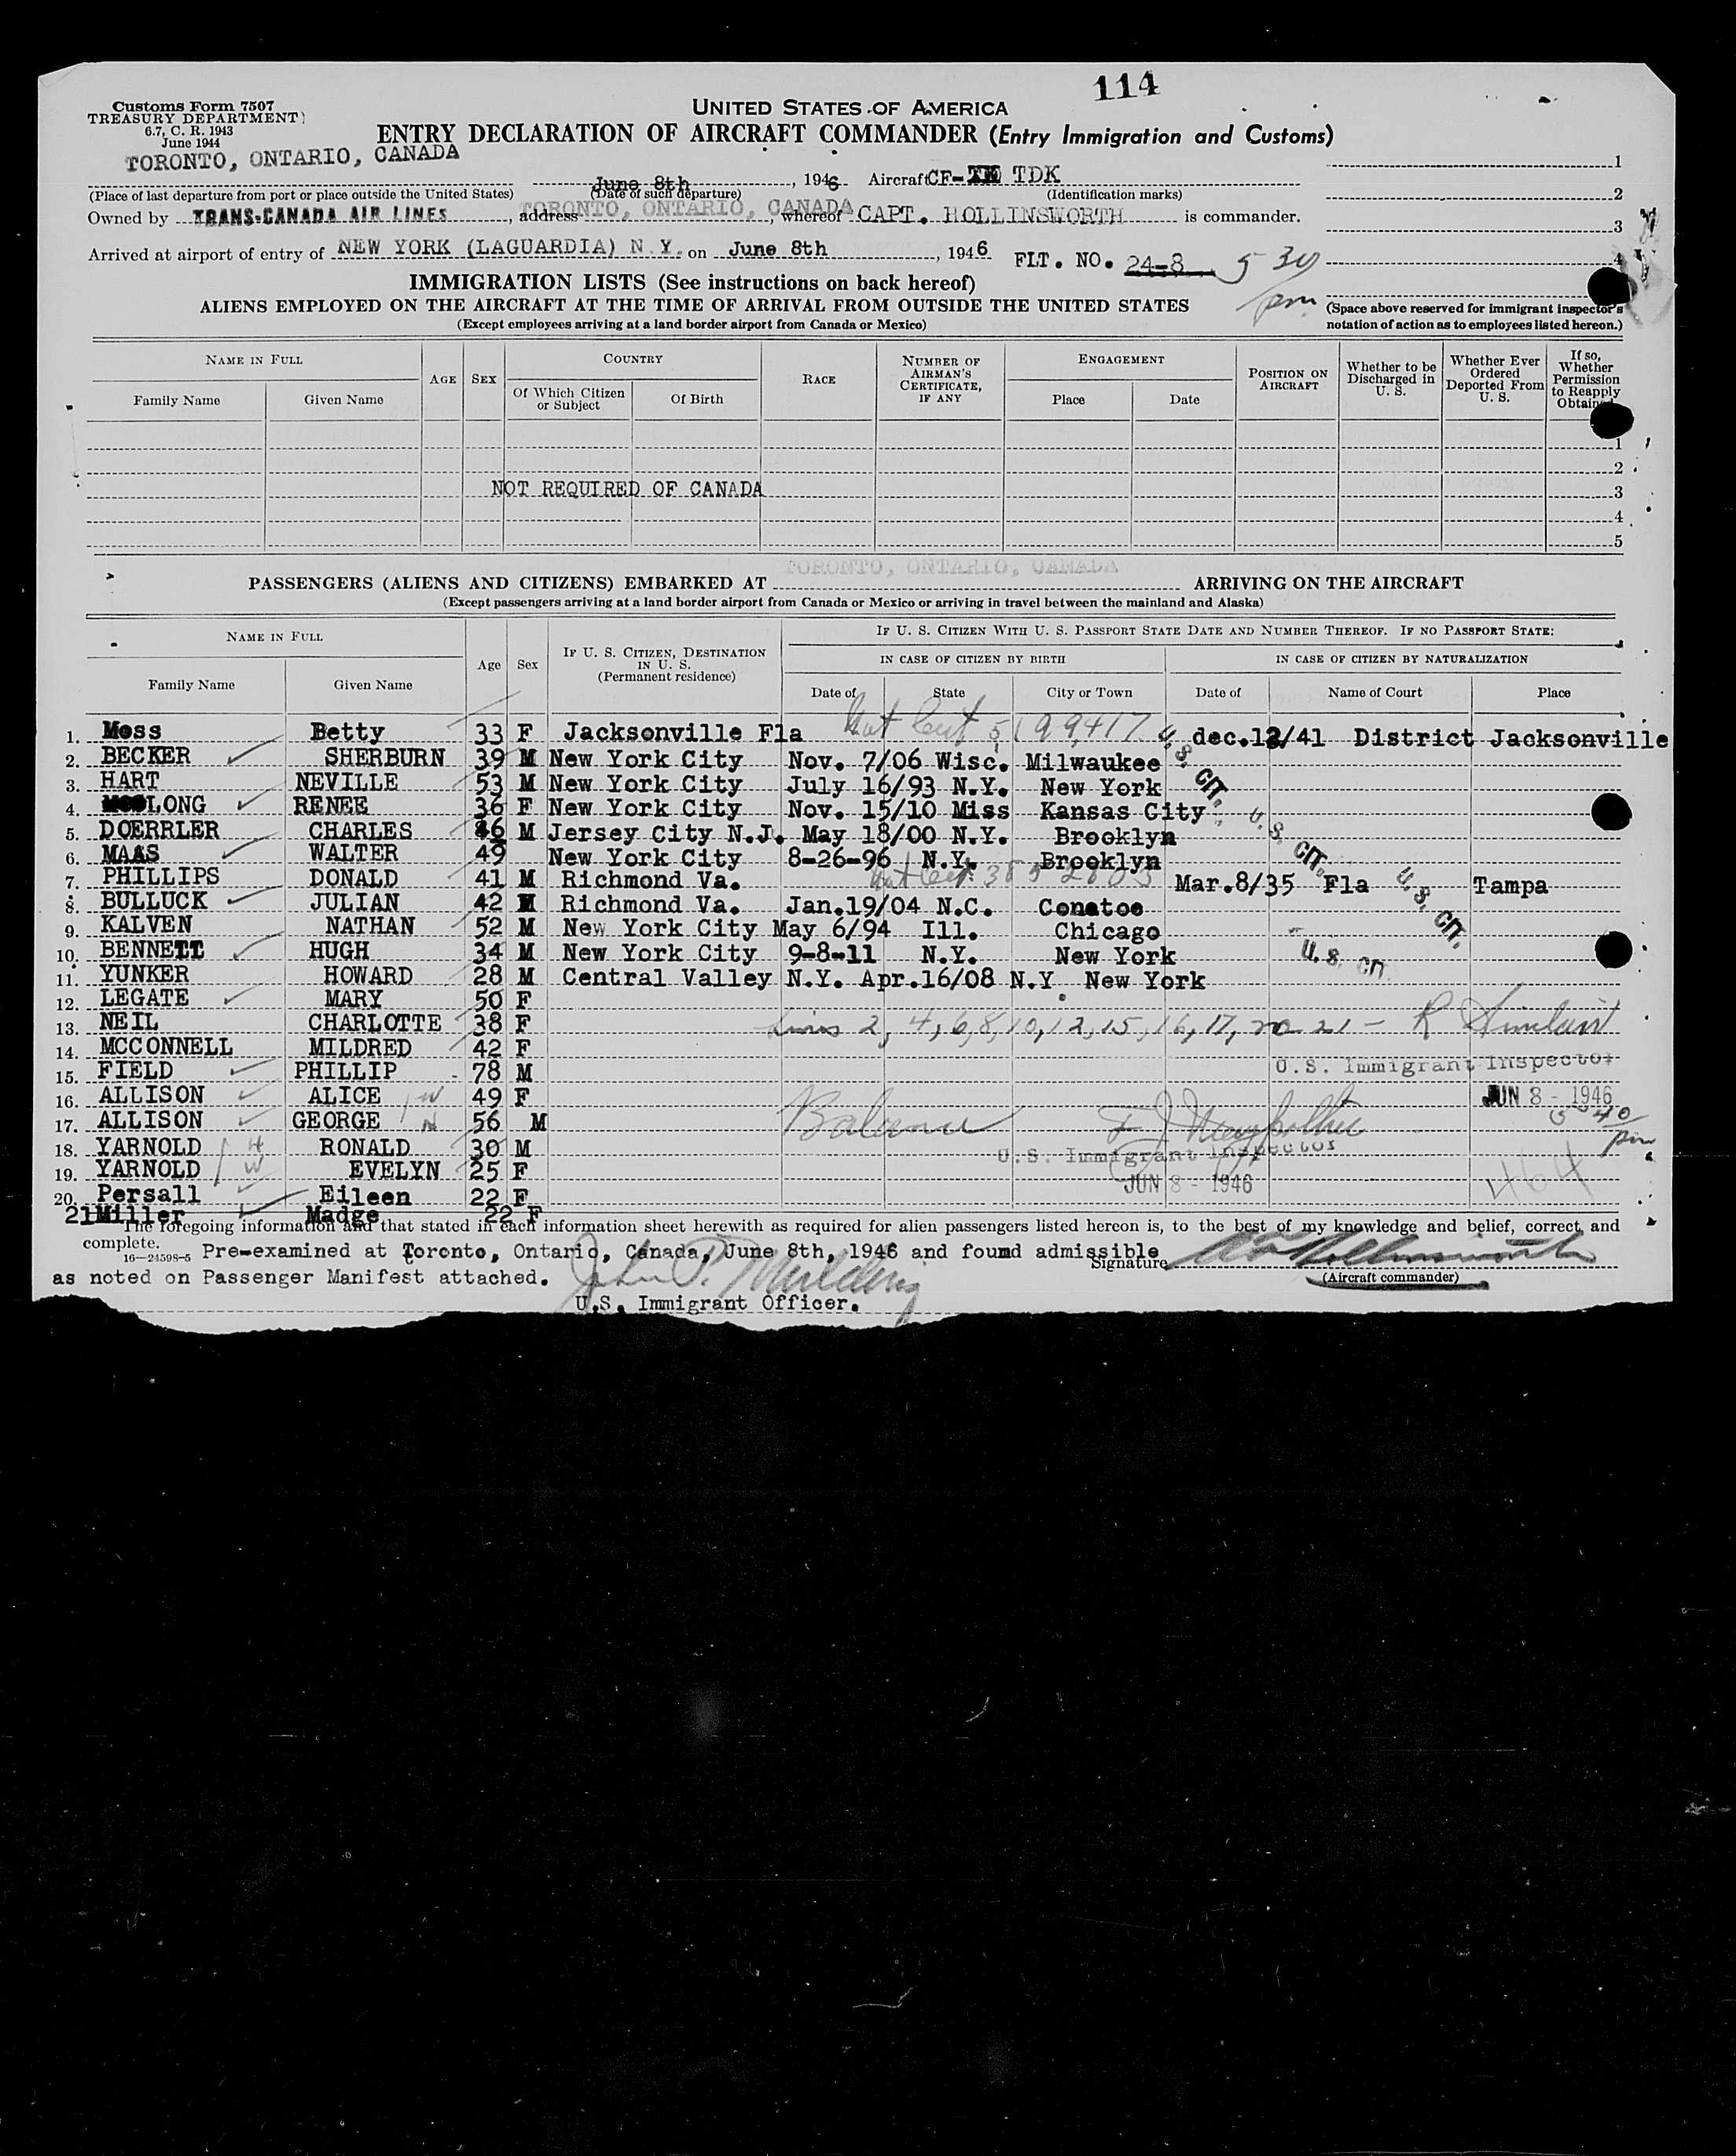 114
Customs Form 7507
TREASURY DEPARTMENT
6.7, C. R. 1943
June 1944
UNITED STATES OF AMERICA
ENTRY DECLARATION OF AIRCRAFT COMMANDER (Entry Immigration and Customs)
TORONTO, ONTARIO, CANADA
1
June 8th, 1946 Aircraft CF- TDK
(Place of last departure from port or place outside the United States) (Date of such departure) (Identification marks)
2
Owned by TRANS-CANADA AIR LINES, address TORONTO, ONTARIO, CANADA, whereof CAPT. HOLLINSWORTH is commander.
3
Arrived at airport of entry of NEW YORK (LAGUARDIA) N.Y. on June 8th, 1946 FLT. NO. 24-8 5 30 pm
4
IMMIGRATION LISTS (See instructions on back hereof)
ALIENS EMPLOYED ON THE AIRCRAFT AT THE TIME OF ARRIVAL FROM OUTSIDE THE UNITED STATES
(Except employees arriving at a land border airport from Canada or Mexico)
(Space above reserved for immigrant inspector's
notation of action as to employees listed hereon.)
NAME IN FULL AGE SEX COUNTRY RACE NUMBER OF AIRMAN'S CERTIFICATE, IF ANY ENGAGEMENT POSITION ON AIRCRAFT Whether to be Discharged in U. S. Whether Ever Ordered Deported From U. S. If so, Whether Permission to Reapply Obtained
Family Name Given Name Of Which Citizen or Subject Of Birth Place Date
1
2
NOT REQUIRED OF CANADA 3
4
5
PASSENGERS (ALIENS AND CITIZENS) EMBARKED AT TORONTO, ONTARIO, CANADA ARRIVING ON THE AIRCRAFT
(Except passengers arriving at a land border airport from Canada or Mexico or arriving in travel between the mainland and Alaska)
NAME IN FULL Age Sex IF U. S. CITIZEN, DESTINATION IN U. S. (Permanent residence) IF U. S. CITIZEN WITH U. S. PASSPORT STATE DATE AND NUMBER THEREOF. IF NO PASSPORT STATE:
IN CASE OF CITIZEN BY BIRTH IN CASE OF CITIZEN BY NATURALIZATION
Family Name Given Name Date of State City or Town Date of Name of Court Place
1. Moss Betty 33 F Jacksonville Fla Nat Cert 5199417 U.S. CIT. dec.12/41 District Jacksonville
2. BECKER SHERBURN 39 M New York City Nov. 7/06 Wisc. Milwaukee
3. HART NEVILLE 53 M New York City July 16/93 N.Y. New York
4. LONG RENEE 36 F New York City Nov. 15/10 Miss Kansas City U.S. CIT.
5. DOERRLER CHARLES 46 M Jersey City N.J. May 18/00 N.Y. Brooklyn
6. MAAS WALTER 49 New York City 8-26-96 N.Y. Brooklyn
7. PHILLIPS DONALD 41 M Richmond Va. Nat Cert. Mar.8/35 Fla U.S. CIT. Tampa
8. BULLUCK JULIAN 42 M Richmond Va. Jan.19/04 N.C. Conetoe
9. KALVEN NATHAN 52 M New York City May 6/94 Ill. Chicago
10. BENNETT HUGH 34 M New York City 9-8-11 N.Y. New York U.S. CIT.
11. YUNKER HOWARD 28 M Central Valley N.Y. Apr.16/08 N.Y. New York
12. LEGATE MARY 50 F
13. NEIL CHARLOTTE 38 F Lines 2, 4, 6, 8, 10, 12, 15, 16, 17, 20 21 - R Sinclair
14. MCCONNELL MILDRED 42 F
15. FIELD PHILLIP 78 M U.S. Immigrant Inspector
16. ALLISON ALICE W 49 F JUN 8 - 1946
17. ALLISON GEORGE H 56 M Balance 5 40 pm
18. YARNOLD H RONALD 30 M U.S. Immigrant Inspector
19. YARNOLD W EVELYN 25 F JUN 8 - 1946 464
20. Persall Eileen 22 F
21 Miller Madge 22 F
The foregoing information and that stated in each information sheet herewith as required for alien passengers listed hereon is, to the best of my knowledge and belief, correct and
complete.
16—24598-5 Pre-examined at Toronto, Ontario, Canada, June 8th, 1946 and found admissible
Signature
as noted on Passenger Manifest attached. (Aircraft commander)
U.S. Immigrant Officer.